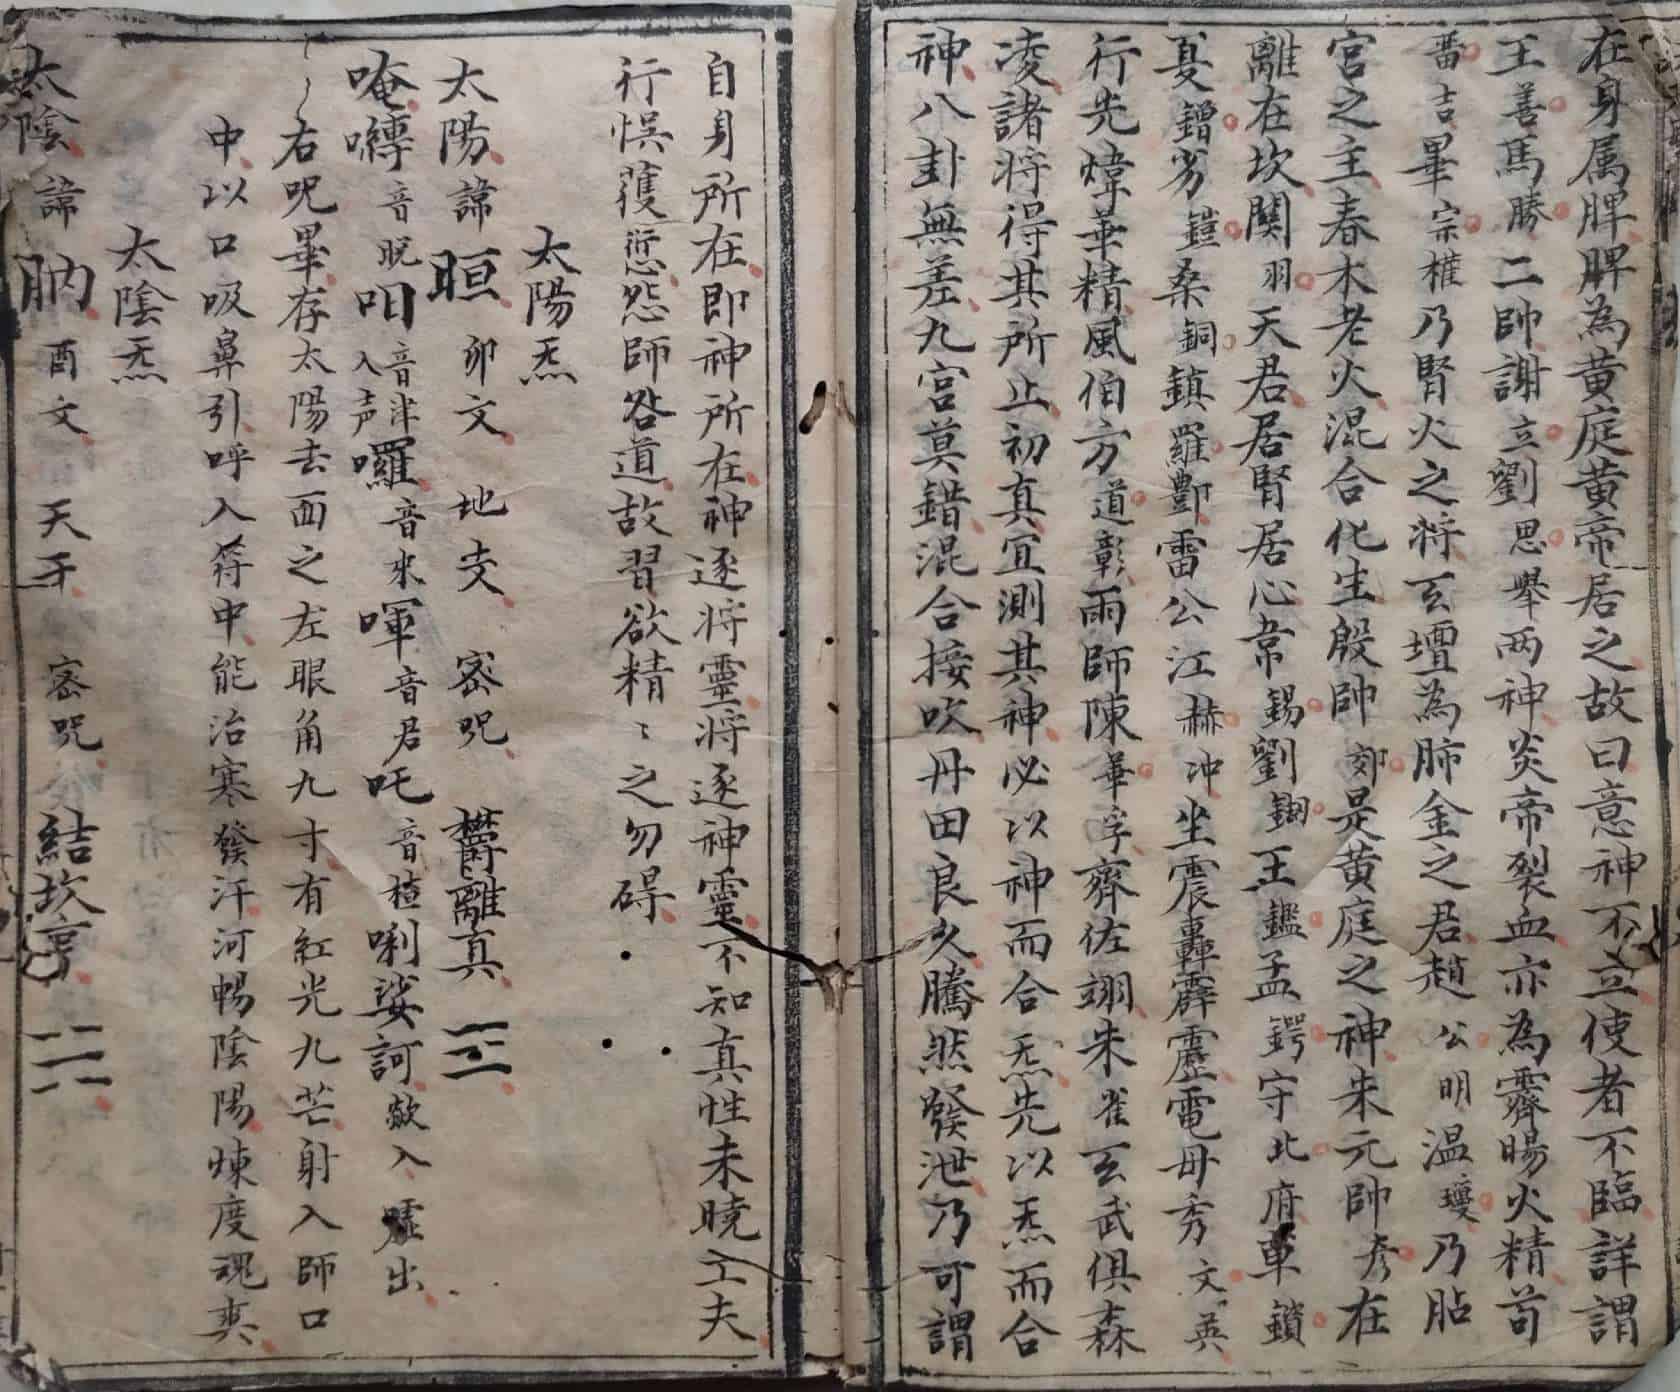 在身属脾脾為黄庭黄帝居之故曰意神不立使者不臨詳謂
王善馬勝二帥謝立劉思舉两神炎帝裂血亦為霽暘火精苟
畱吉畢宗權乃腎火之将玄壇為肺金之君趙公明温瓊乃貼
宮之主春木老火混合化生殷帥郊是黄庭之神朱元帥彦在
離在坎関羽天君居腎居心常錫劉錮王鑑孟鍔守北府車鎖
夏鐠劣鎧桑銅鎮羅酆雷公江赫冲坐震轟霹靂電母秀文英
行先煒華精風伯方道彰雨師陳華孚齊佐翊朱雀玄武俱森
凌諸将得其所止初真宜測其神必以神而合炁先以炁而合
神八卦無差九宮莫錯混合接吹丹田良久騰然發泄乃可謂
自身所在即神所在神逐将靈将逐神靈不知真性未曉工夫
行悞蒦愆怨師咎道故習欲精〻之勿碍
太陽炁
太陽諱晅卯文地支密咒欝離真三
唵囀音脱呾音津入声囉音来喗音君吒音楂唎娑訶歘入嘘出
右咒畢存太陽去面之左眼角九寸有紅光九芒射入師口
中以口吸鼻引呼入符中能治寒發汗河暢陰陽煉度魂爽
太陰炁
太陰諱肭酉文天干密咒結坎亨